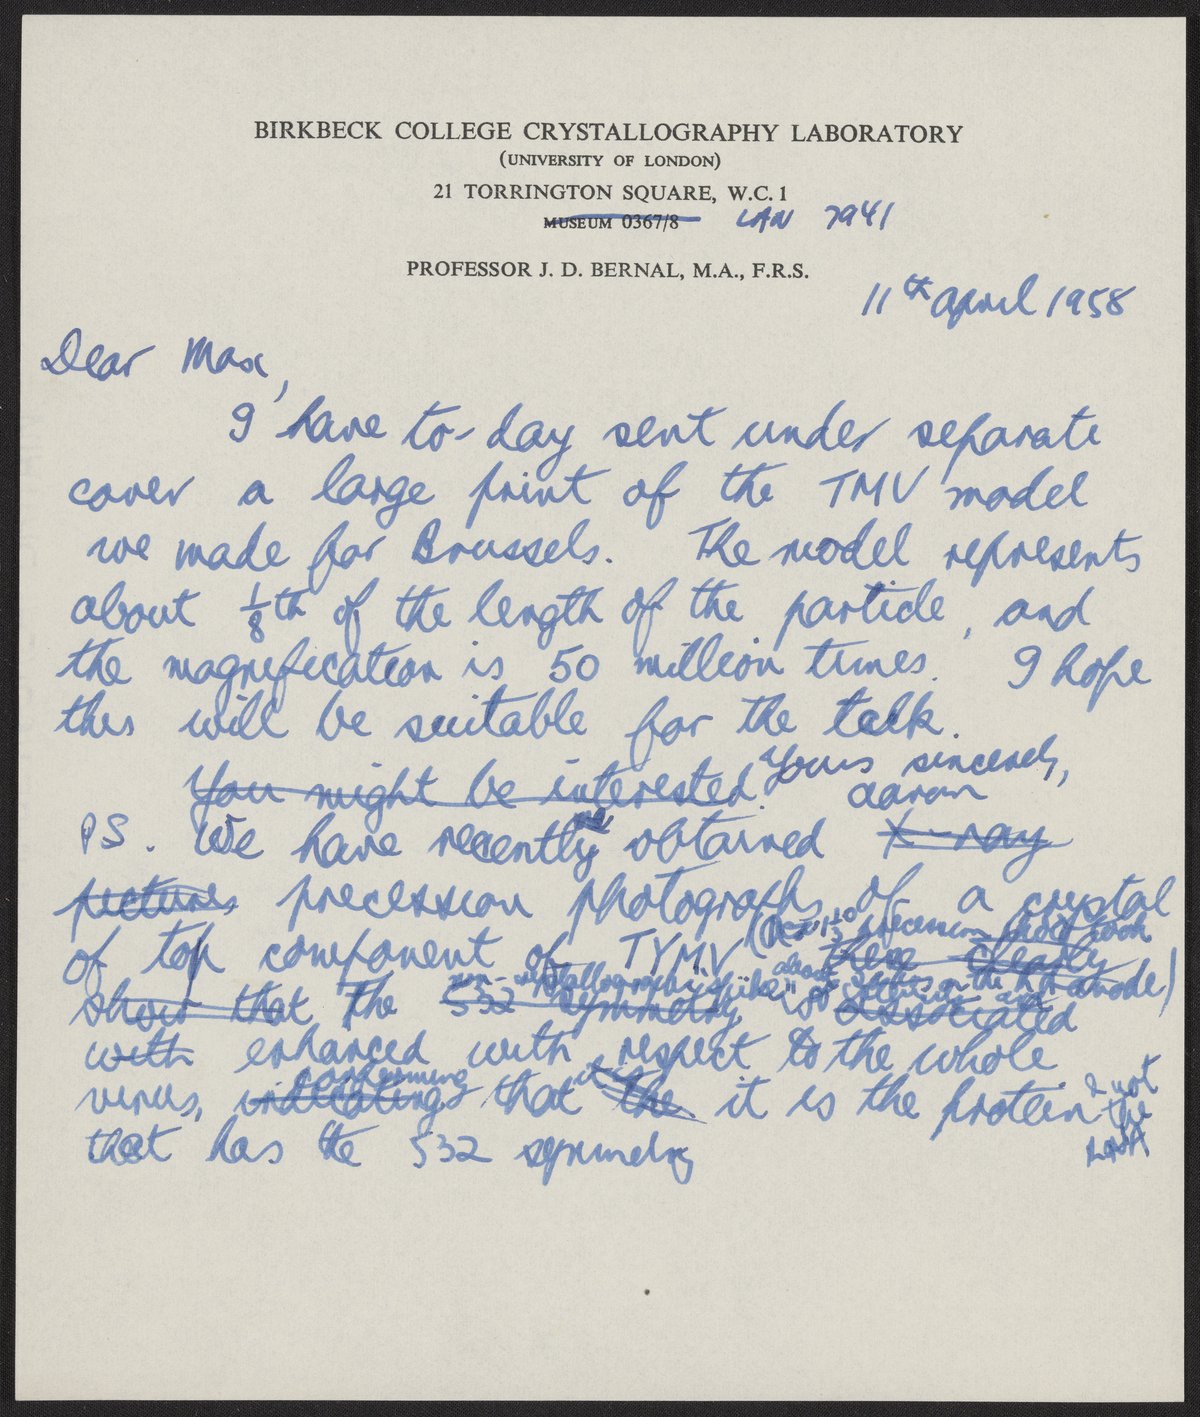 BIRKBECK COLLEGE CRYSTALLOGRAPHY LABORATORY
(UNIVERSITY OF LONDON)
21 TORRINGTON SQUARE, W.C. 1
MUSEUM 0367/8 LAN 7941
PROFESSOR J. D. BERNAL, M.A., F.R.S.
11th April 1958
Dear Max,
I have to-day sent under separate
cover a large print of the TMV model
we made for Brussels. The model represents
about 1/8th of the length of the particle, and
the magnification is 50 million times. I hope
this will be suitable for the talk.
You might be interested. Yours sincerely,
Aaron
PS. We have recently obtained X-ray
pictures precession photographs of a crystal
of top component of TYMV these clearly
precession photo took
show that the 532 symmetry associated
non-crystallographic "spikes" about on the anode)
with enhanced with respect to the whole
virus, indicating that the it is the protein & not
confirming
the
that has the 532 symmetry
RNA